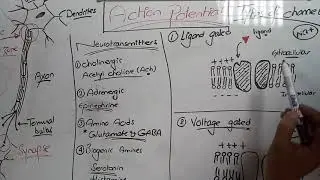 Dendrites
Axon
Terminal bulbs
Synapse
Neurotransmitters
① cholinergic
Acetyl choline (Ach)
② Adrenergic
Epinephrine
③ Amino Acids
Glutamate & GABA
④ Biogenic Amines
Serotonin
Histamine
Action Potential
channel
① Ligand gated
ligand
Extracellular
++++
② Voltage gated
++++